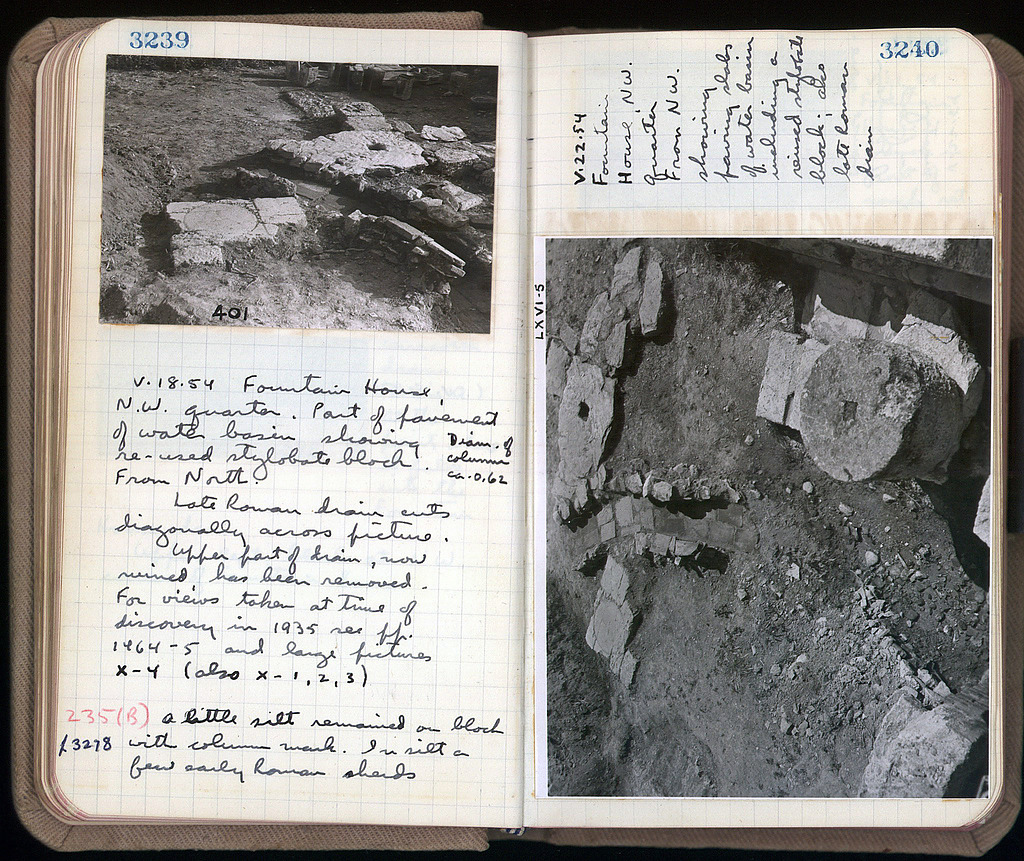 3239
401
V.18.54 Fountain House,
N.W. quarter. Part of pavement
of water basin showing
re-used stylobate block.
From North.
Diam. of
column
ca. 0.62
Late Roman drain cuts
diagonally across picture.
Upper part of drain, now
ruined, has been removed.
For views taken at time of
discovery in 1935 see pp.
1464-5 and large pictures
X-4 (also X-1, 2, 3)
235(B) a little silt remained on block
p.3278 with column mark. In silt a
few early Roman sherds
3240
V.22.54
Fountain
House, N.W.
quarter
From N.W.
showing
paving slabs
of water basin
including a
reused stylobate
block; also
late Roman
drain
LXVI-5